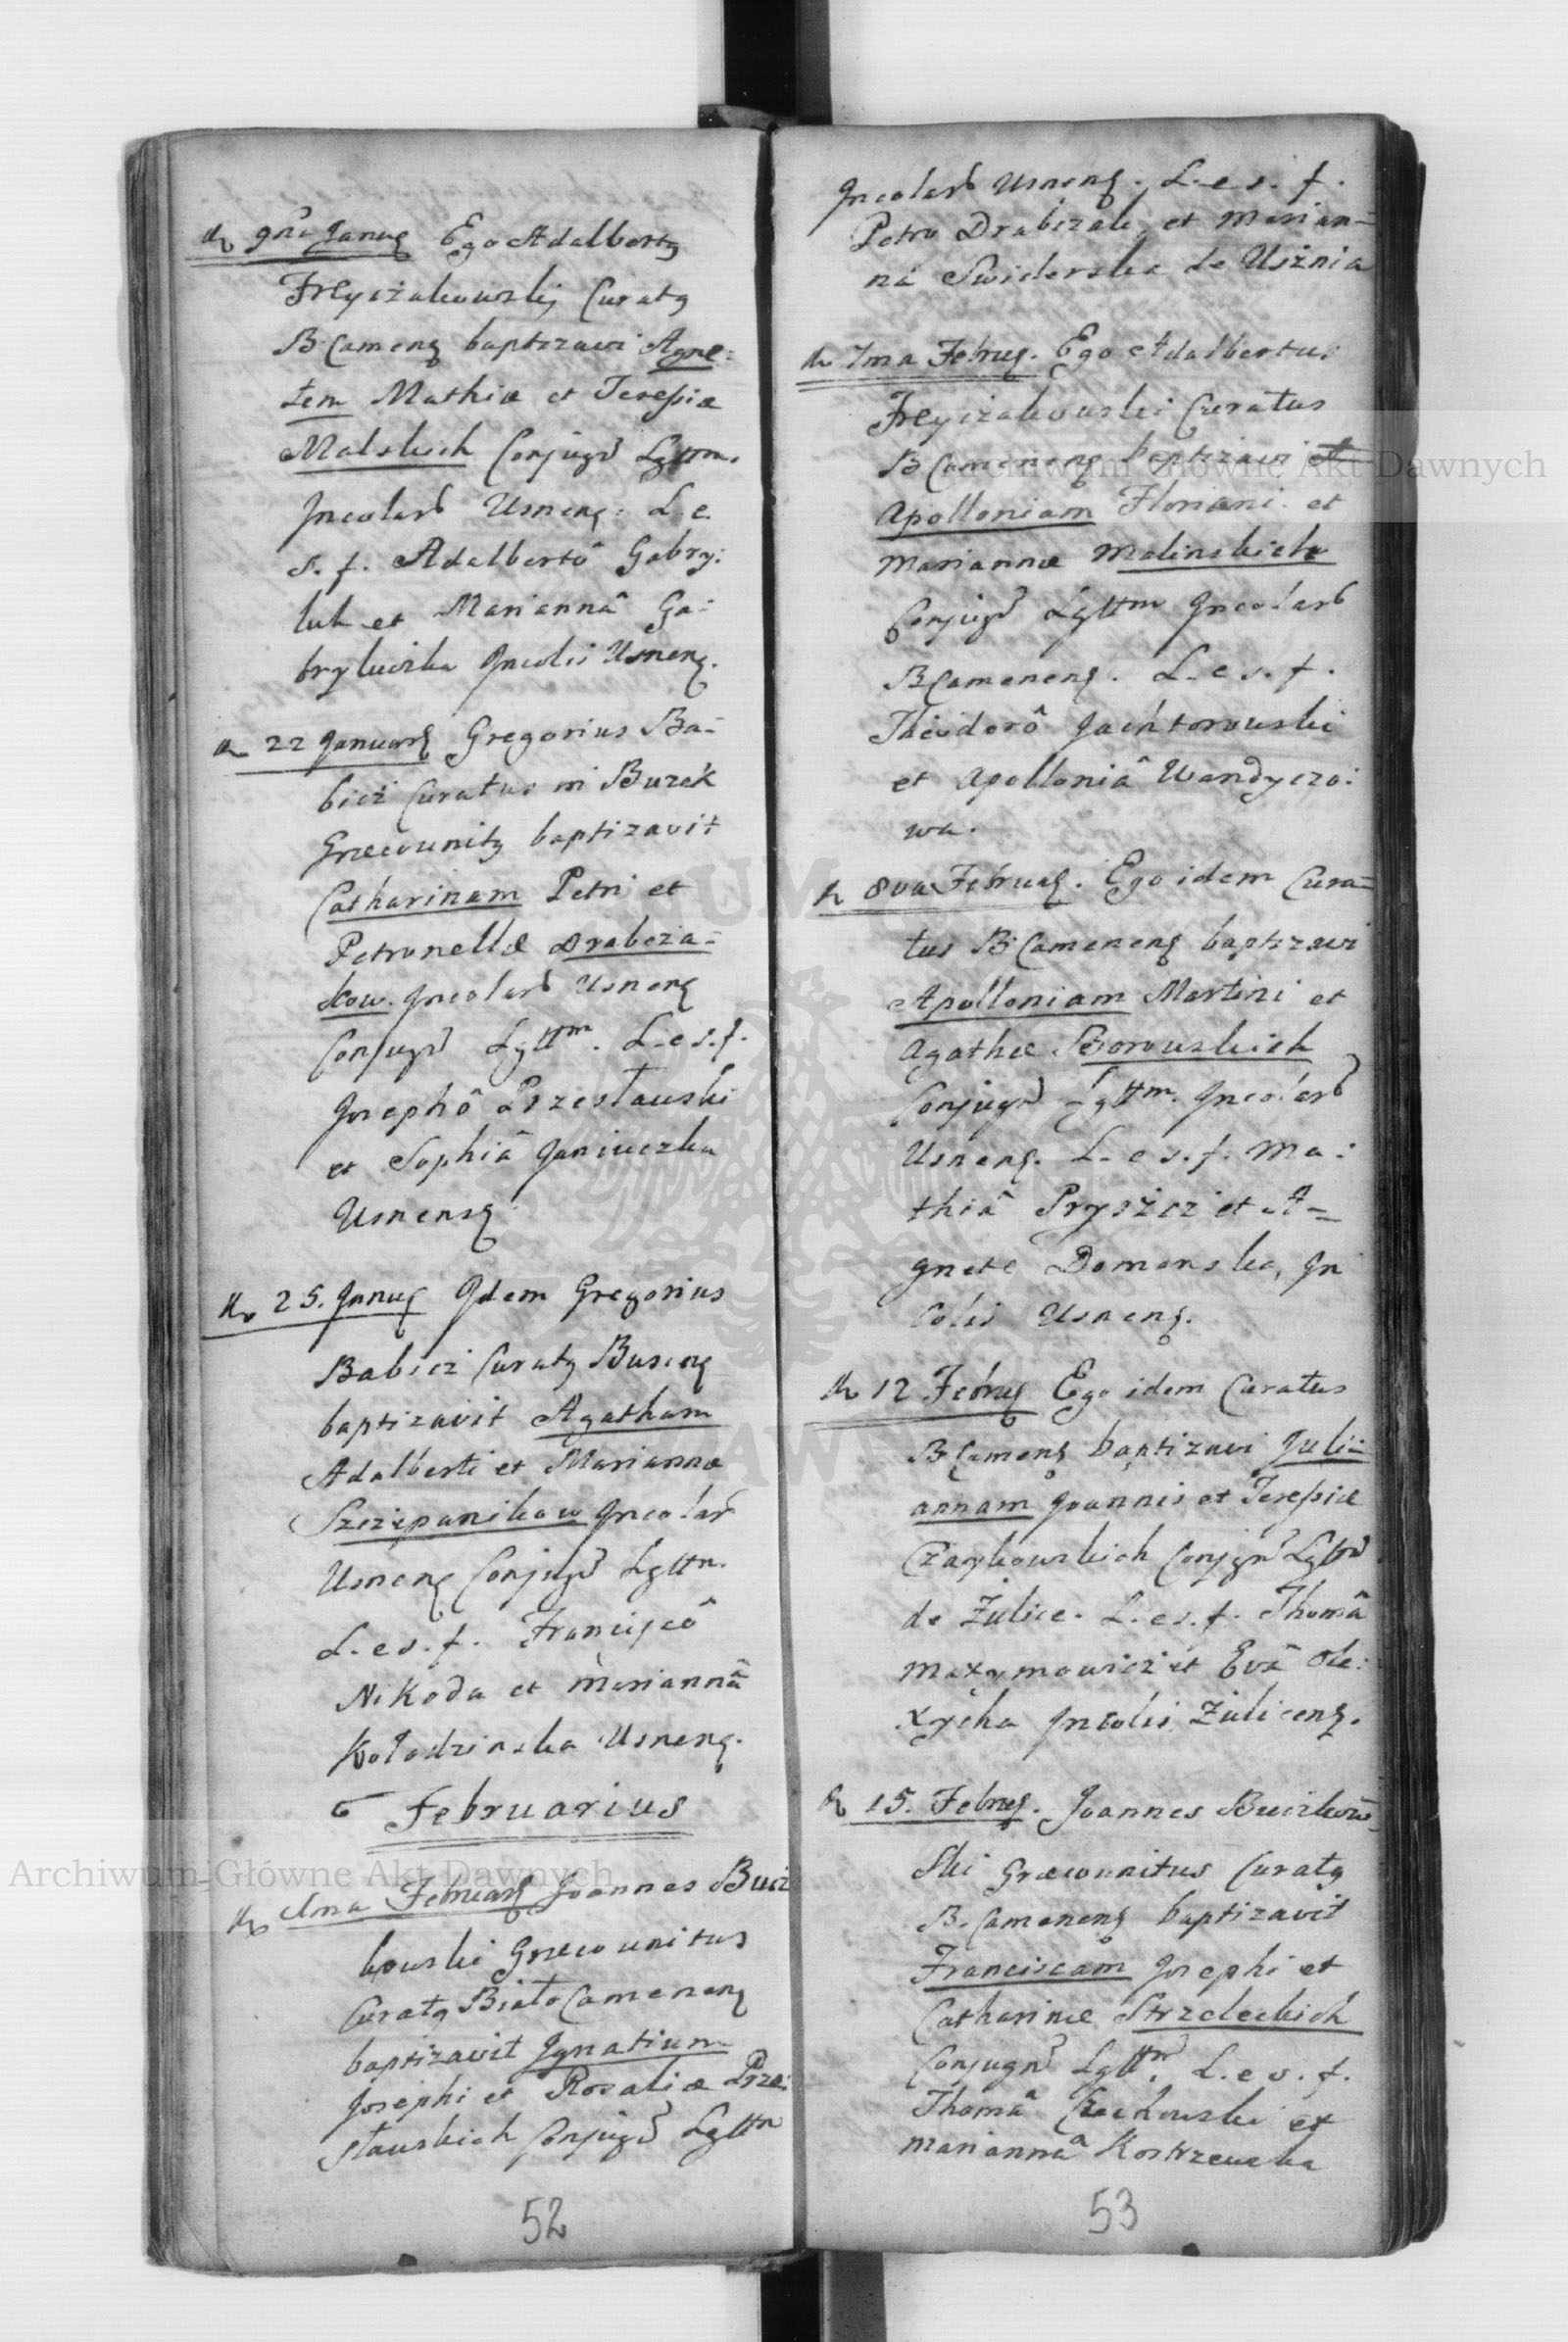 9na Janu͞s Ego Adalbertg
Freyiżakowskij Curatg
B Cameng baptizavi Agne=
tem Mathiæ et Teressiæ
Malskich Conjug Lgttm.
Incolar Usneng. L. e.
s. f. Adalbertô Gabry:
luk et Mariannâ Ga:
bryluczka Incolis Usneng.
22 Januarg Gregorius Ba=
bicz Curatus in Buzek
Græcounitg baptizavit
Catharinam Petri et
Petronellæ Drabcza=
kow. Incolar Usneng
Conjugr Lgttm. L. e s. f.
Josephô Przestawski
et Sophiâ Janiuczka
Usnensg
25. Janug Idem Gregorius
Babicz Curatg Buseng
baptizavit Agatham
Adalberti et Mariannæ
Szczepanikow Incolar
Usneng Conjugr Lgttm.
L. e s. f. Franciscô
Nikoda et Mariannâ
Kołodzinska Usneng.
6 Februarius
1ma Februarg Joannes Bucz
kowski Græcounitus
Curatg Biało Cameneng
baptizavit Ignatium
Josephi et Rosaliæ Prze:
stawskich Conjugr Lgttm
52
Incolar Usneng. L. e s. f.
Petro Drabczak, et Marian=
nâ Swiderska de Usznia
7ma Februg. Ego Adalbertus
Freyiżakowski Curatus
B Cameneng baptizavi
Apolloniam Floriani et
Mariannæ Malinskich
Conjugr Lgttm Incolar
B Cameneng. L. e s. f.
Theodorô Jachtorowski
et Apolloniâ Wandyczo:
wa.
8va Februag. Ego idem Cura=
tus B Cameneng baptizavi
Apolloniam Martini et
Agathæ Borowskich
Conjugr Lgttm. Incolar
Usneng. L. e s. f. Ma:
thiâ Pryszcz et A=
gnete Domanska, In
colis Usneng.
12 Februg Ego idem Curatus
B Cameng baptizavi Juli=
annam Joannis et Teressiæ
Czaykowskich Conjgr Lgttm
de Żulice. L. e s. f. Thomâ
Maxymowicz et Evâ Ole:
xycha Incolis Żuliceng.
15. Februg. Joannes Buczkow=
ski Græcounitus Curatg
B. Cameneng baptizavit
Franciscam Josephi et
Catharinæ Strzeleckich
Conjugr Lgttm. L. e s. f.
Thomâ Czechowski et
Mariannâ Kostrzewska
53
Archiwum Główne Akt Dawnych
Archiwum Główne Akt Dawnych